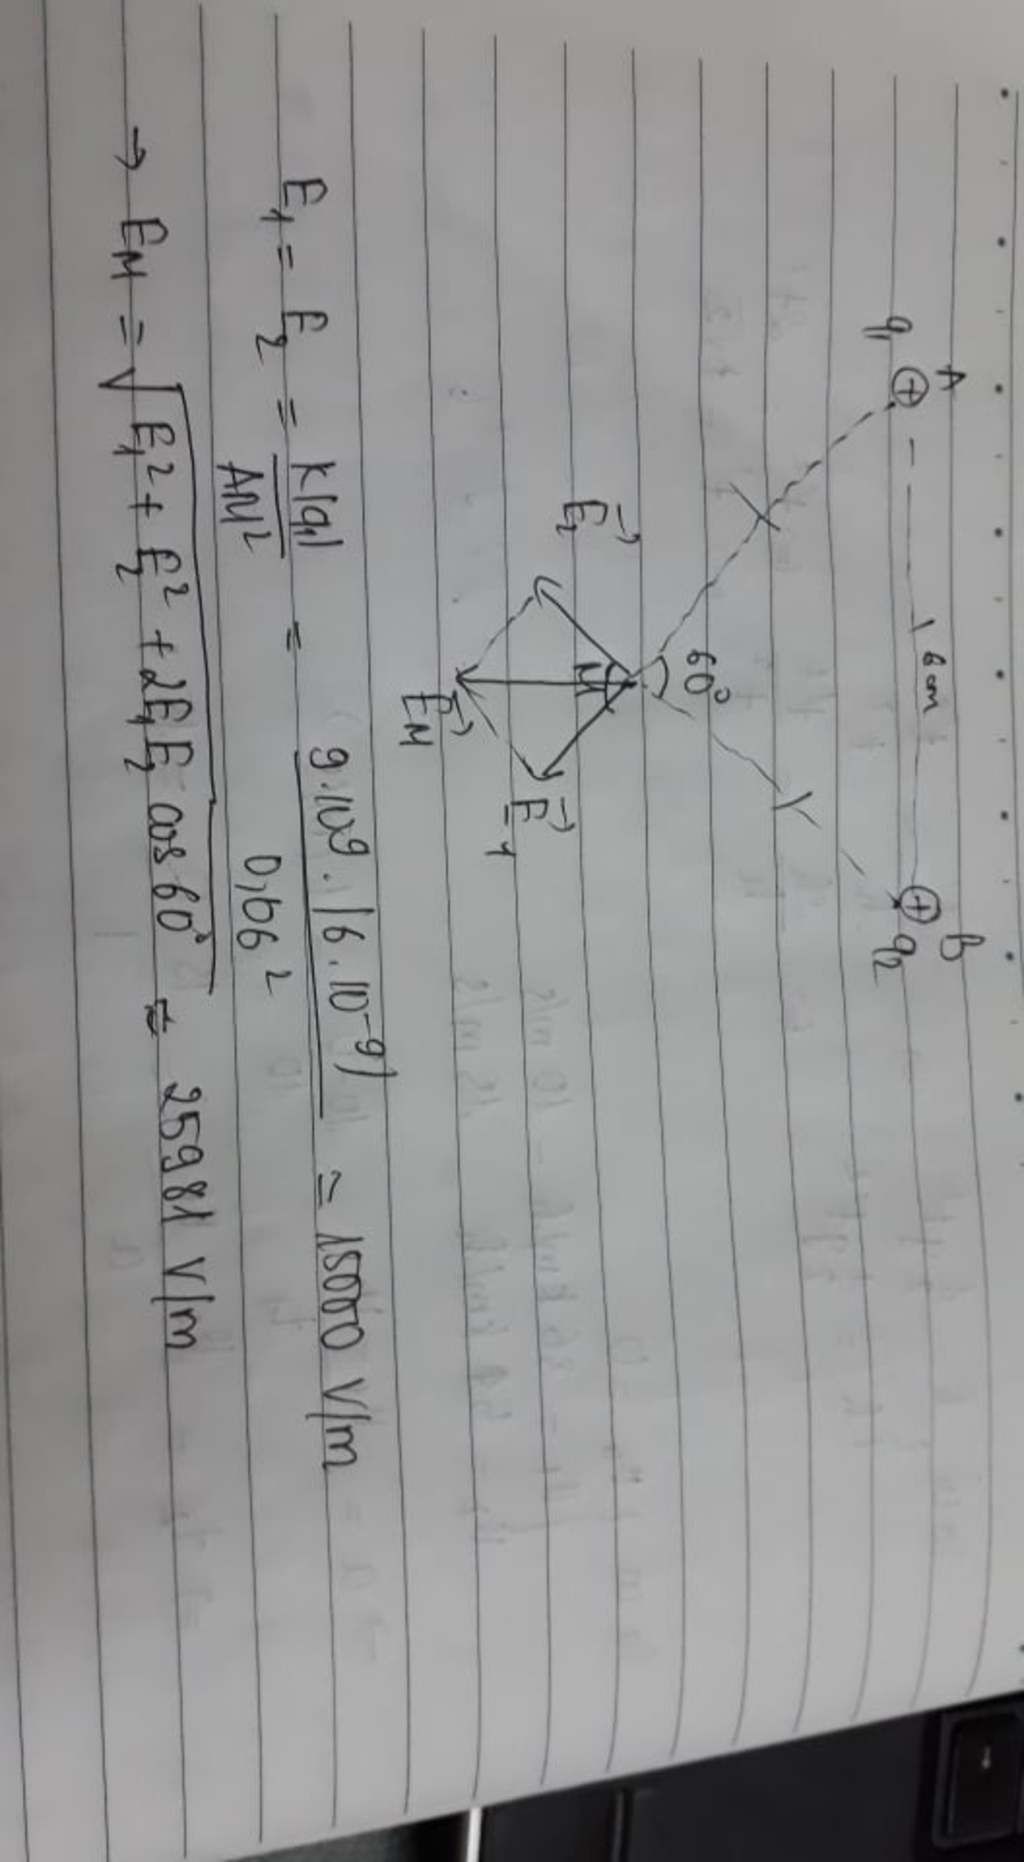 A B
q₁ ⊕ 6cm ⊕ q₂
60°
M
E₂→ E₁→
E_M→
E₁ = E₂ = K|q₁| / AM² = 9.10⁹.|6.10⁻⁹| / 0,06² = 15000 V/m
→ E_M = √(E₁² + E₂² + 2E₁E₂ cos 60°) = 25981 V/m